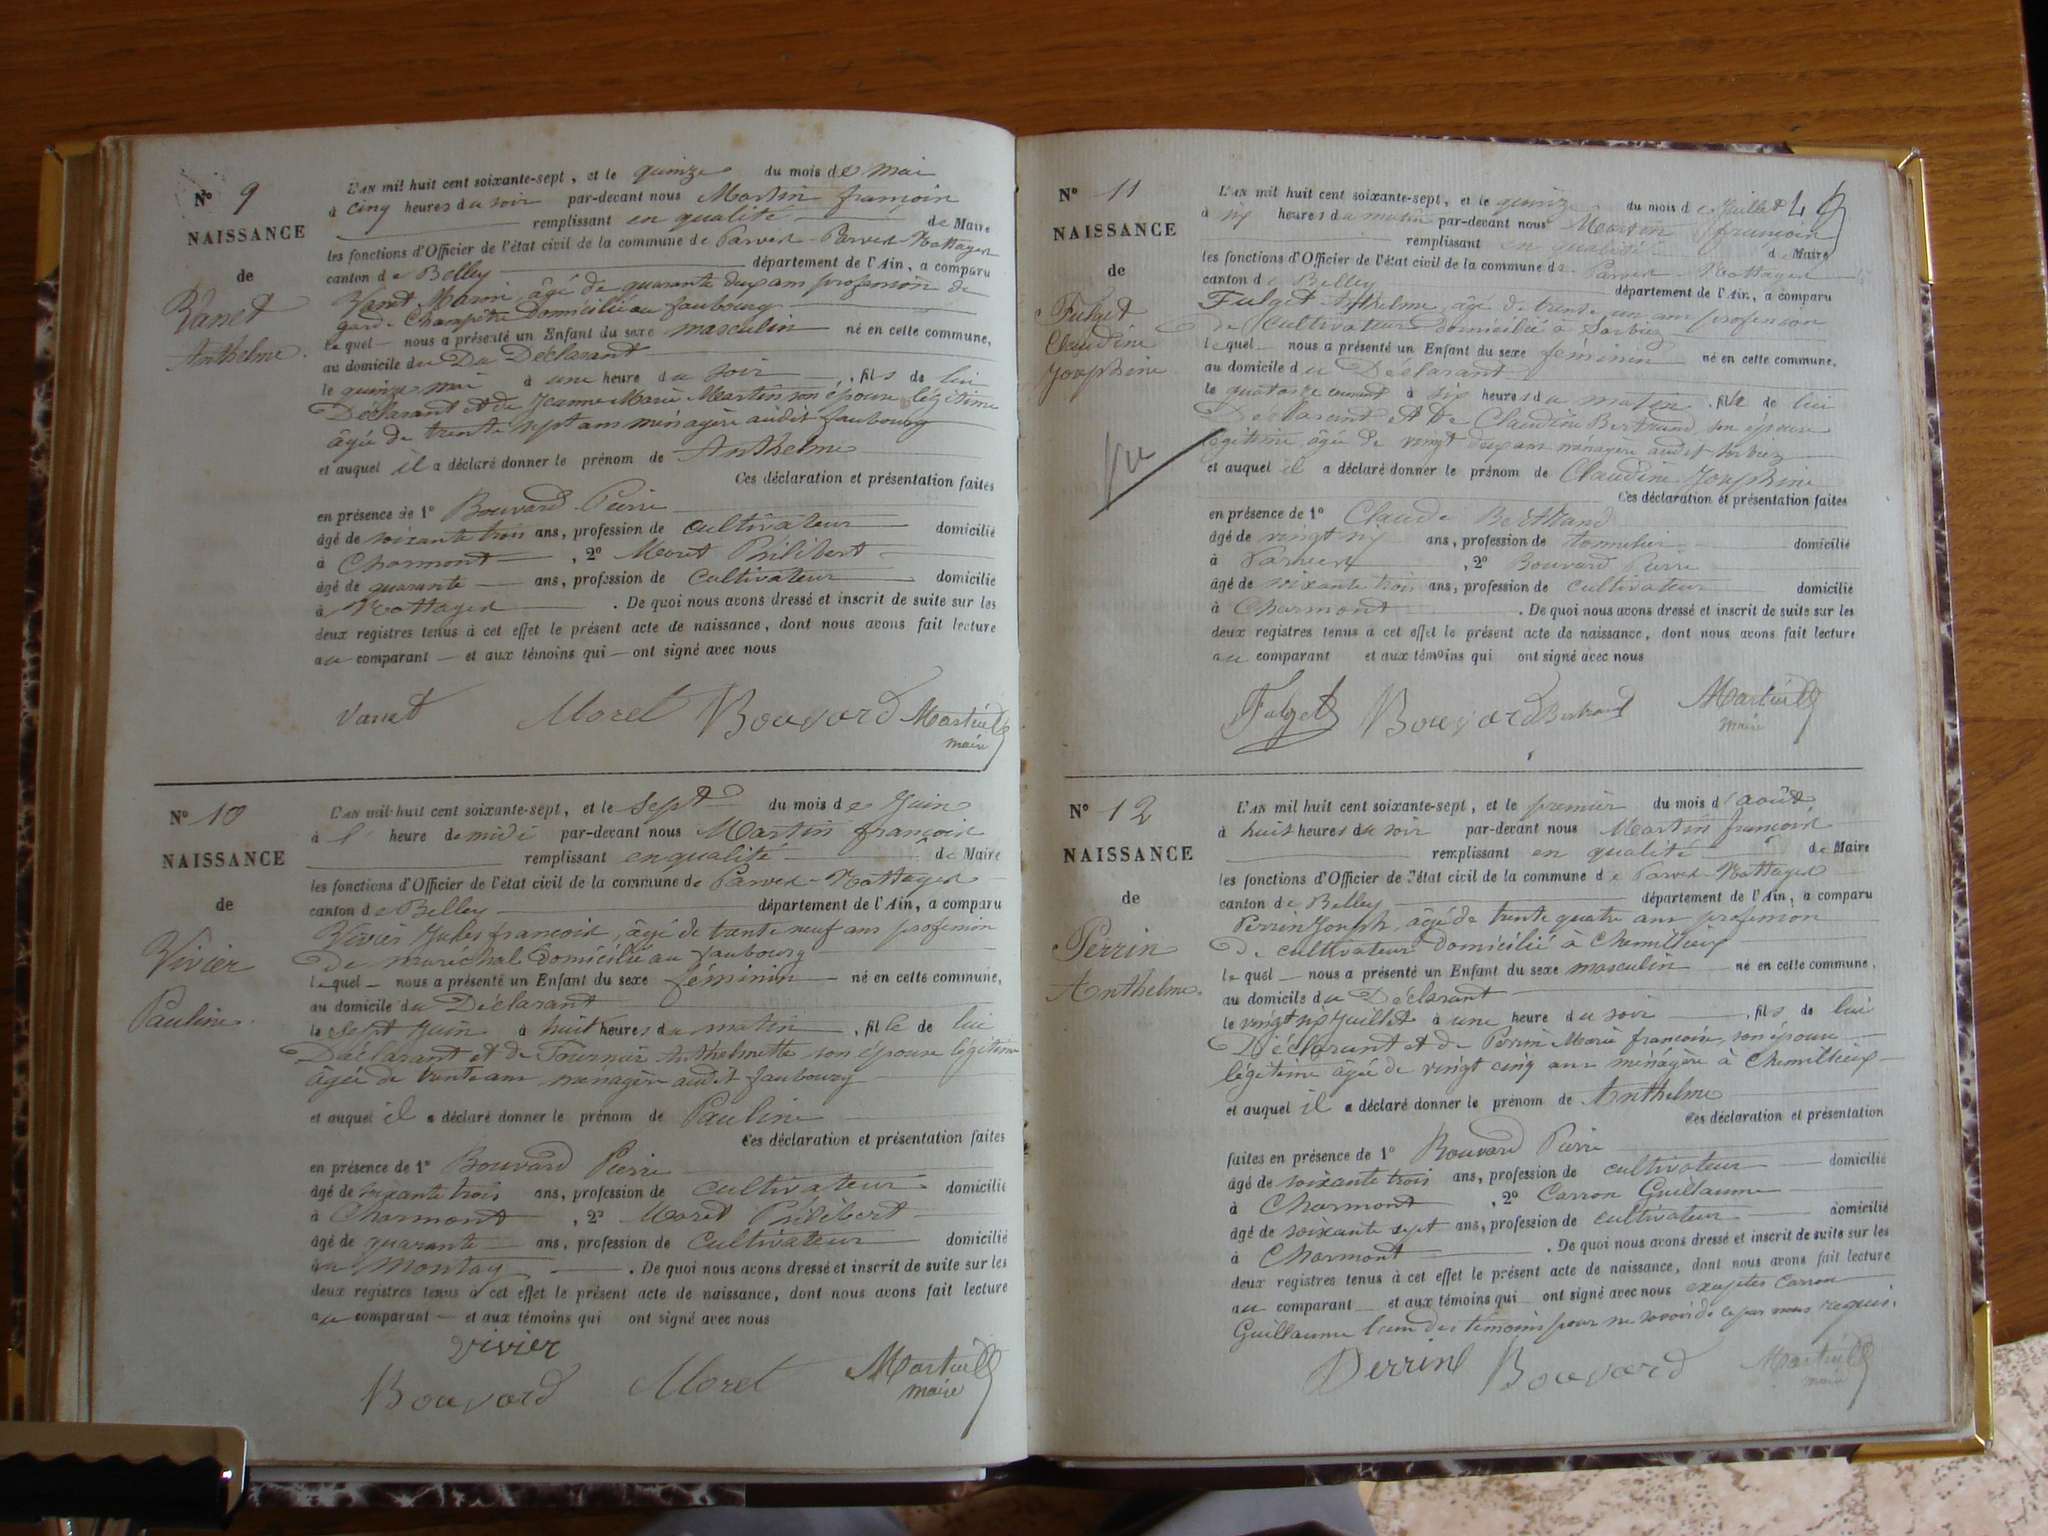 N° 9
NAISSANCE
de
Vanet
Anthelme.
L'AN mil huit cent soixante-sept, et le quinze du mois de mai
à cinq heures du soir par-devant nous Martin françois
remplissant en qualité de Maire
les fonctions d'Officier de l'état civil de la commune de Parves-Nattages
canton de Belley département de l'Ain, a comparu
Vanet Marin, âgé de quarante deux ans profession de
garde Champêtre domicilié au faubourg
lequel nous a présenté un Enfant du sexe masculin né en cette commune,
au domicile du Du Déclarant
le quinze mai à une heure du soir, fils de lui
Déclarant et de Jeanne Marie Martin son épouse légitime
âgée de trente sept ans ménagère audit faubourg
et auquel il a déclaré donner le prénom de Anthelme
Ces déclaration et présentation faites
en présence de 1° Bouvard Pierre
âgé de soixante trois ans, profession de cultivateur domicilié
à Charmont, 2° Moret Philibert
âgé de quarante ans, profession de Cultivateur domicilié
à Nattages. De quoi nous avons dressé et inscrit de suite sur les
deux registres tenus à cet effet le présent acte de naissance, dont nous avons fait lecture
au comparant et aux témoins qui ont signé avec nous
Vanet Moret Bouvard Martin
maire
N° 10
NAISSANCE
de
Vivier
Pauline.
L'AN mil huit cent soixante-sept, et le Sept du mois de Juin
à l' heure de midi par-devant nous Martin françois
remplissant en qualité de Maire
les fonctions d'Officier de l'état civil de la commune de Parves-Nattages
canton de Belley département de l'Ain, a comparu
Vivier Jules françois, âgé de trente neuf ans profession
de maréchal domicilié au faubourg
lequel nous a présenté un Enfant du sexe féminin né en cette commune,
au domicile du Déclarant
le Sept Juin à huit heures du matin, fille de lui
Déclarant et de Fournier Anthelmette son épouse légitime
âgée de trente ans ménagère audit faubourg
et auquel il a déclaré donner le prénom de Pauline
Ces déclaration et présentation faites
en présence de 1° Bouvard Pierre
âgé de soixante trois ans, profession de cultivateur domicilié
à Charmont, 2° Moret Philibert
âgé de quarante ans, profession de Cultivateur domicilié
au Montay. De quoi nous avons dressé et inscrit de suite sur les
deux registres tenus à cet effet le présent acte de naissance, dont nous avons fait lecture
au comparant et aux témoins qui ont signé avec nous
Vivier
Bouvard Moret Martin
maire
N° 11
NAISSANCE
de
Fulget
Claudine
Josephine
L'AN mil huit cent soixante-sept, et le quinze du mois de Juillet
à six heures du matin par-devant nous Martin françois
remplissant en qualité de Maire
les fonctions d'Officier de l'état civil de la commune de Parves-Nattages
canton de Belley département de l'Ain, a comparu
Fulget Anthelme, âgé de trente un ans profession
de Cultivateur domicilié à Sorbiez
lequel nous a présenté un Enfant du sexe féminin né en cette commune.
au domicile du Déclarant
le quatorze courant à six heures du matin, fille de lui
Déclarant et De Claudine Bertrand son épouse
légitime, âgée de vingt deux ans ménagère audit Sorbiez
et auquel il a déclaré donner le prénom de Claudine Josephine
Ces déclaration et présentation faites
en présence de 1° Claude Bertrand
âgé de vingt six ans, profession de tonnelier domicilié
à Parves, 2° Bouvard Pierre
âgé de soixante trois ans, profession de cultivateur domicilié
à Charmont. De quoi nous avons dressé et inscrit de suite sur les
deux registres tenus à cet effet le présent acte de naissance, dont nous avons fait lecture
au comparant et aux témoins qui ont signé avec nous
Fulget Bouvard Bertrand Martin
maire
N° 12
NAISSANCE
de
Perrin
Anthelme.
L'AN mil huit cent soixante-sept, et le premier du mois d'août
à huit heures du soir par-devant nous Martin françois
remplissant en qualité de Maire
les fonctions d'Officier de l'état civil de la commune de Parves-Nattages
canton de Belley département de l'Ain, a comparu
Perrin Joseph, âgé de trente quatre ans profession
de cultivateur domicilié à Chemillieux
lequel nous a présenté un Enfant du sexe masculin né en cette commune.
au domicile du Déclarant
le vingt six Juillet à une heure du soir, fils de lui
Déclarant et de Perrin Marie françoise, son épouse
légitime âgée de vingt cinq ans ménagère à Chemillieux
et auquel il a déclaré donner le prénom de Anthelme
Ces déclaration et présentation
faites en présence de 1° Bouvard Pierre
âgé de soixante trois ans, profession de cultivateur domicilié
à Charmont, 2° Carron Guillaume
âgé de soixante sept ans, profession de cultivateur domicilié
à Charmont. De quoi nous avons dressé et inscrit de suite sur les
deux registres tenus à cet effet le présent acte de naissance, dont nous avons fait lecture
au comparant et aux témoins qui ont signé avec nous exeptés Carron
Guillaume l'un des témoins pour ne savoir de ce par nous requis.
Perrin Bouvard Martin
maire